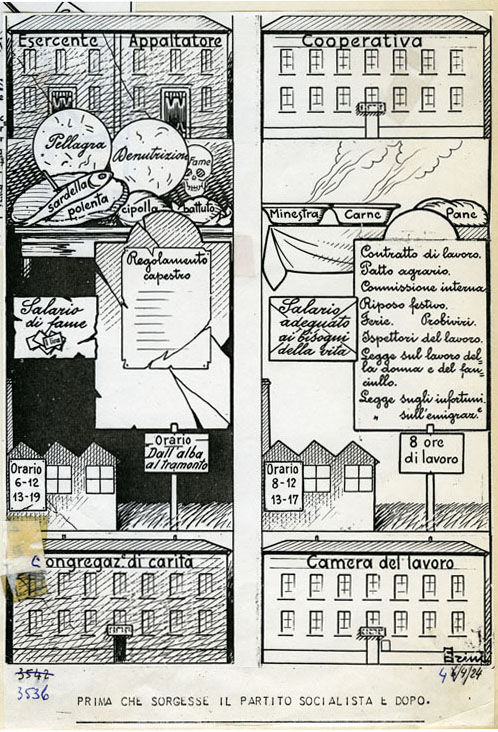 Esercente Appaltatore
Pellagra
Denutrizione
Fame
sardella
polenta
cipolla
battuto
Regolamento
capestro
Salario
di fame
1 lira
Orario
Dall'alba
al Tramonto
Orario
6-12
13-19
Congregaz. di carità
Cooperativa
Minestra
Carne
Pane
Contratto di lavoro.
Patto agrario.
Commissione interna
Riposo festivo.
Ferie. Probiviri.
Ispettori del lavoro.
Legge sul lavoro del-
la donna e del fan-
ciullo.
Legge sugli infortuni.
" sull'emigraz.e
Salario
adeguato
ai bisogni
della vita
8 ore
di lavoro
Orario
8-12
13-17
Camera del lavoro
4/9/24
3542
3536
PRIMA CHE SORGESSE IL PARTITO SOCIALISTA E DOPO.